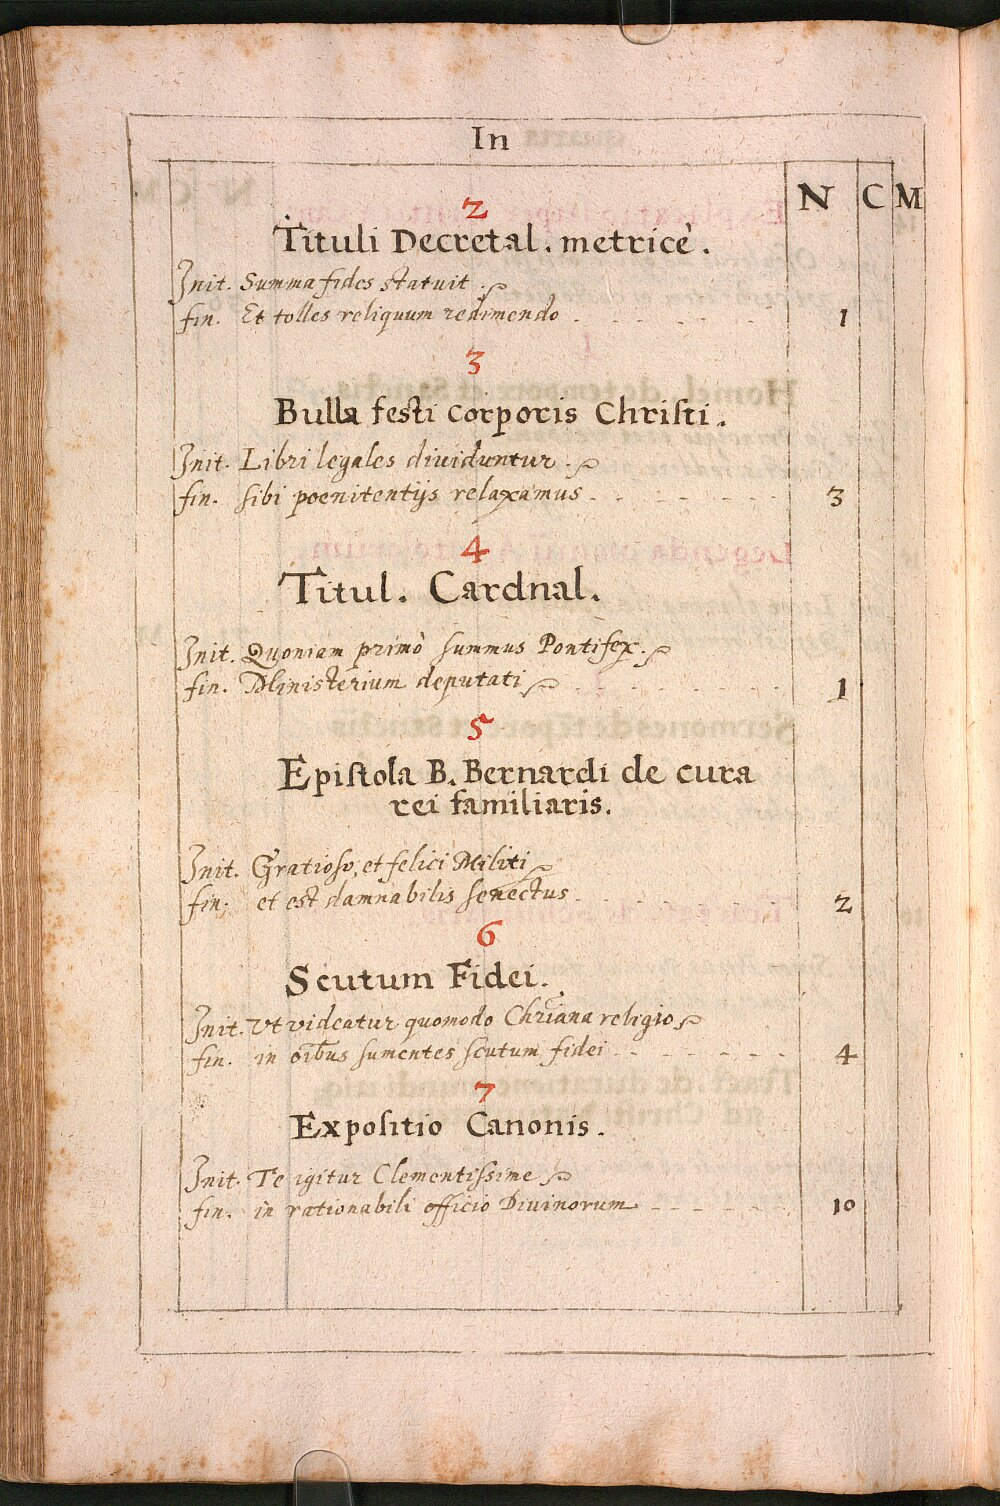 In
N C M
2
Tituli Decretal. metricè.
Init. Summa fides statuit.
fin. Et tolles reliquum redimendo 1
3
Bulla festi corporis Christi.
Init. Libri legales diuiduntur.
fin. sibi poenitentijs relaxamus 3
4
Titul. Cardnal.
Init. Quoniam primò summus Pontifex.
fin. Ministerium deputati 1
5
Epistola B. Bernardi de cura
rei familiaris.
Init. Gratioso, et felici Militi
fin. et est damnabilis senectus 2
6
Scutum Fidei.
Init. Vt videatur quomodo Chr̄iana religio
fin. in oīb̄us sumentes scutum fidei 4
7
Expositio Canonis.
Init. Te igitur Clementissime
fin. in rationabili officio Diuinorum 10